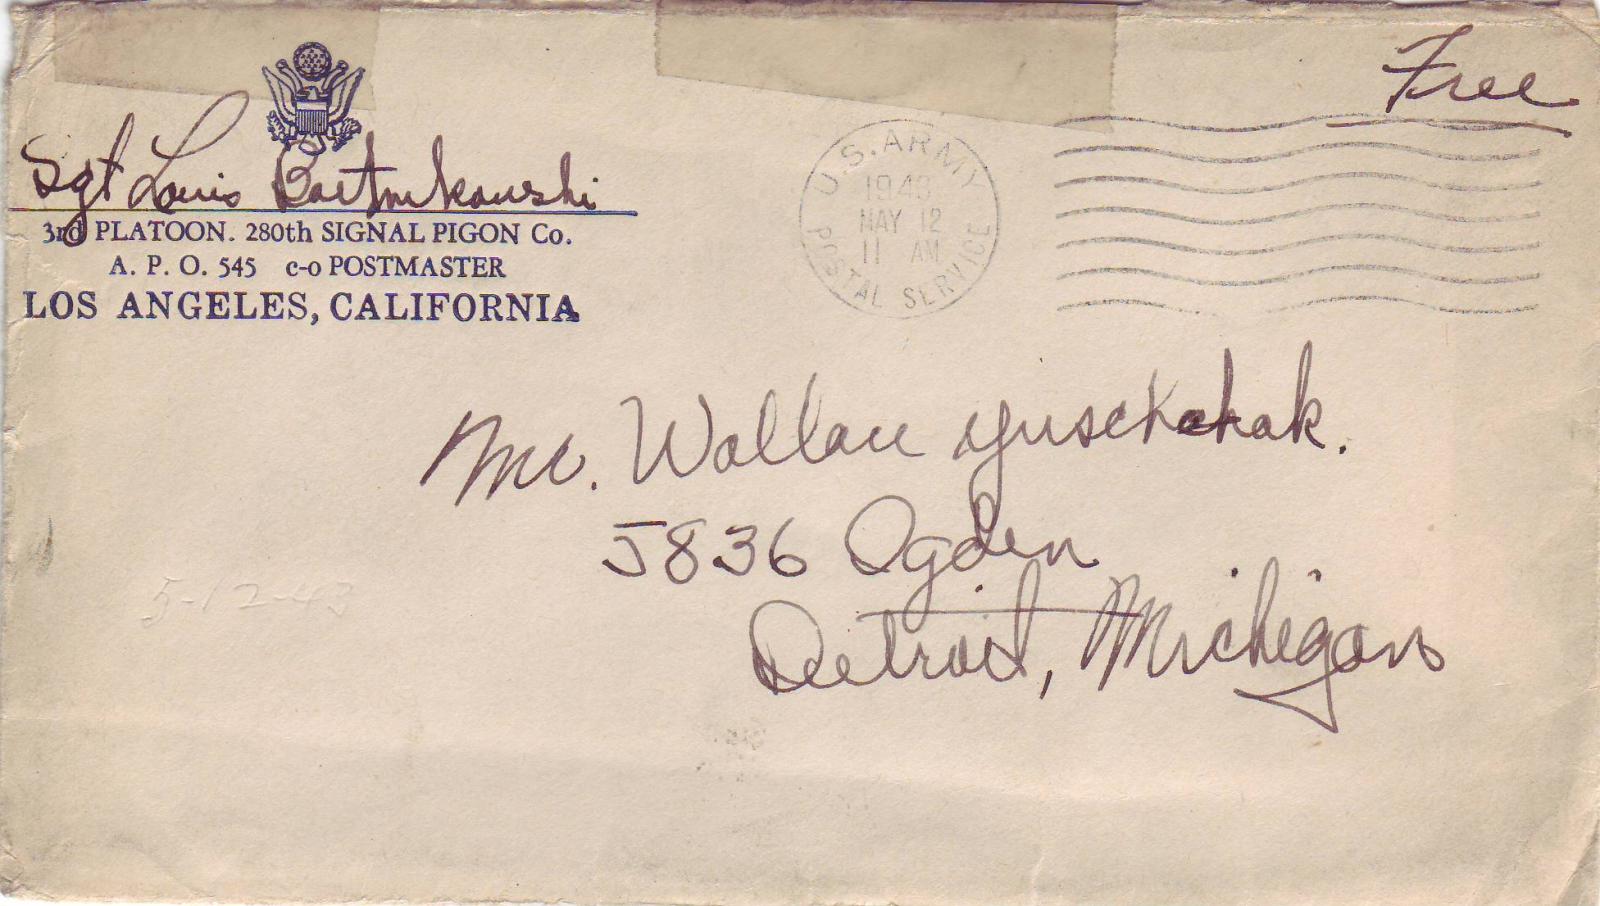 Free
Sgt Louis Bartnikowski
3rd PLATOON. 280th SIGNAL PIGON Co.
A. P. O. 545 c-o POSTMASTER
LOS ANGELES, CALIFORNIA
U.S. ARMY
1943
MAY 12
11 AM
POSTAL SERVICE
Mr. Wallace
5836 Ogden
Detroit, Michigan
5-12-43